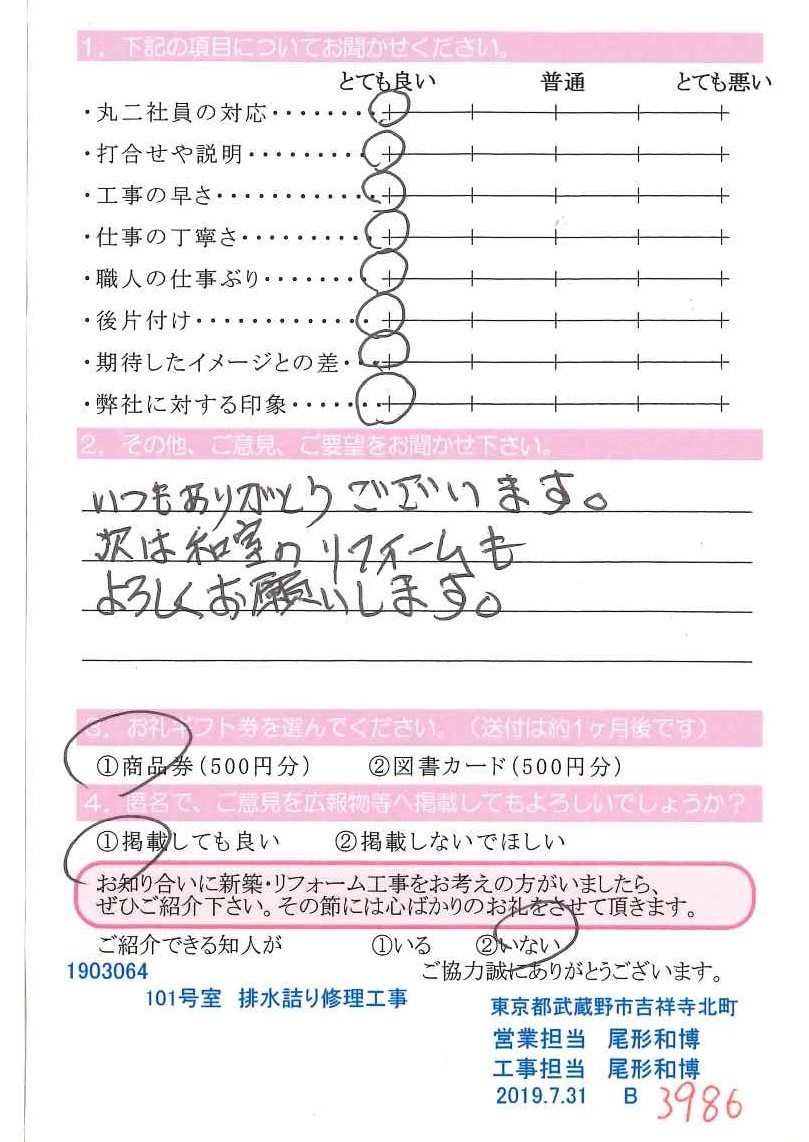 1. 下記の項目についてお聞かせください。
とても良い 普通 とても悪い
・丸二社員の対応・・・・・・・・
・打合せや説明・・・・・・・・・
・工事の早さ・・・・・・・・・・・
・仕事の丁寧さ・・・・・・・・・
・職人の仕事ぶり・・・・・・・
・後片付け・・・・・・・・・・・・
・期待したイメージとの差・・・
・弊社に対する印象・・・・・
2. その他、ご意見、ご要望をお聞かせ下さい。
いつもありがとうございます。
次は和室のリフォームも
よろしくお願いします。
3. お礼ギフト券を選んでください。（送付は約1ヶ月後です）
①商品券（500円分） ②図書カード（500円分）
4. 匿名で、ご意見を広報物等へ掲載してもよろしいでしょうか？
①掲載しても良い ②掲載しないでほしい
お知り合いに新築・リフォーム工事をお考えの方がいましたら、
ぜひご紹介下さい。その節には心ばかりのお礼をさせて頂きます。
ご紹介できる知人が ①いる ②いない
1903064 ご協力誠にありがとうございます。
101号室 排水詰り修理工事 東京都武蔵野市吉祥寺北町
営業担当 尾形和博
工事担当 尾形和博
2019.7.31 B 3986